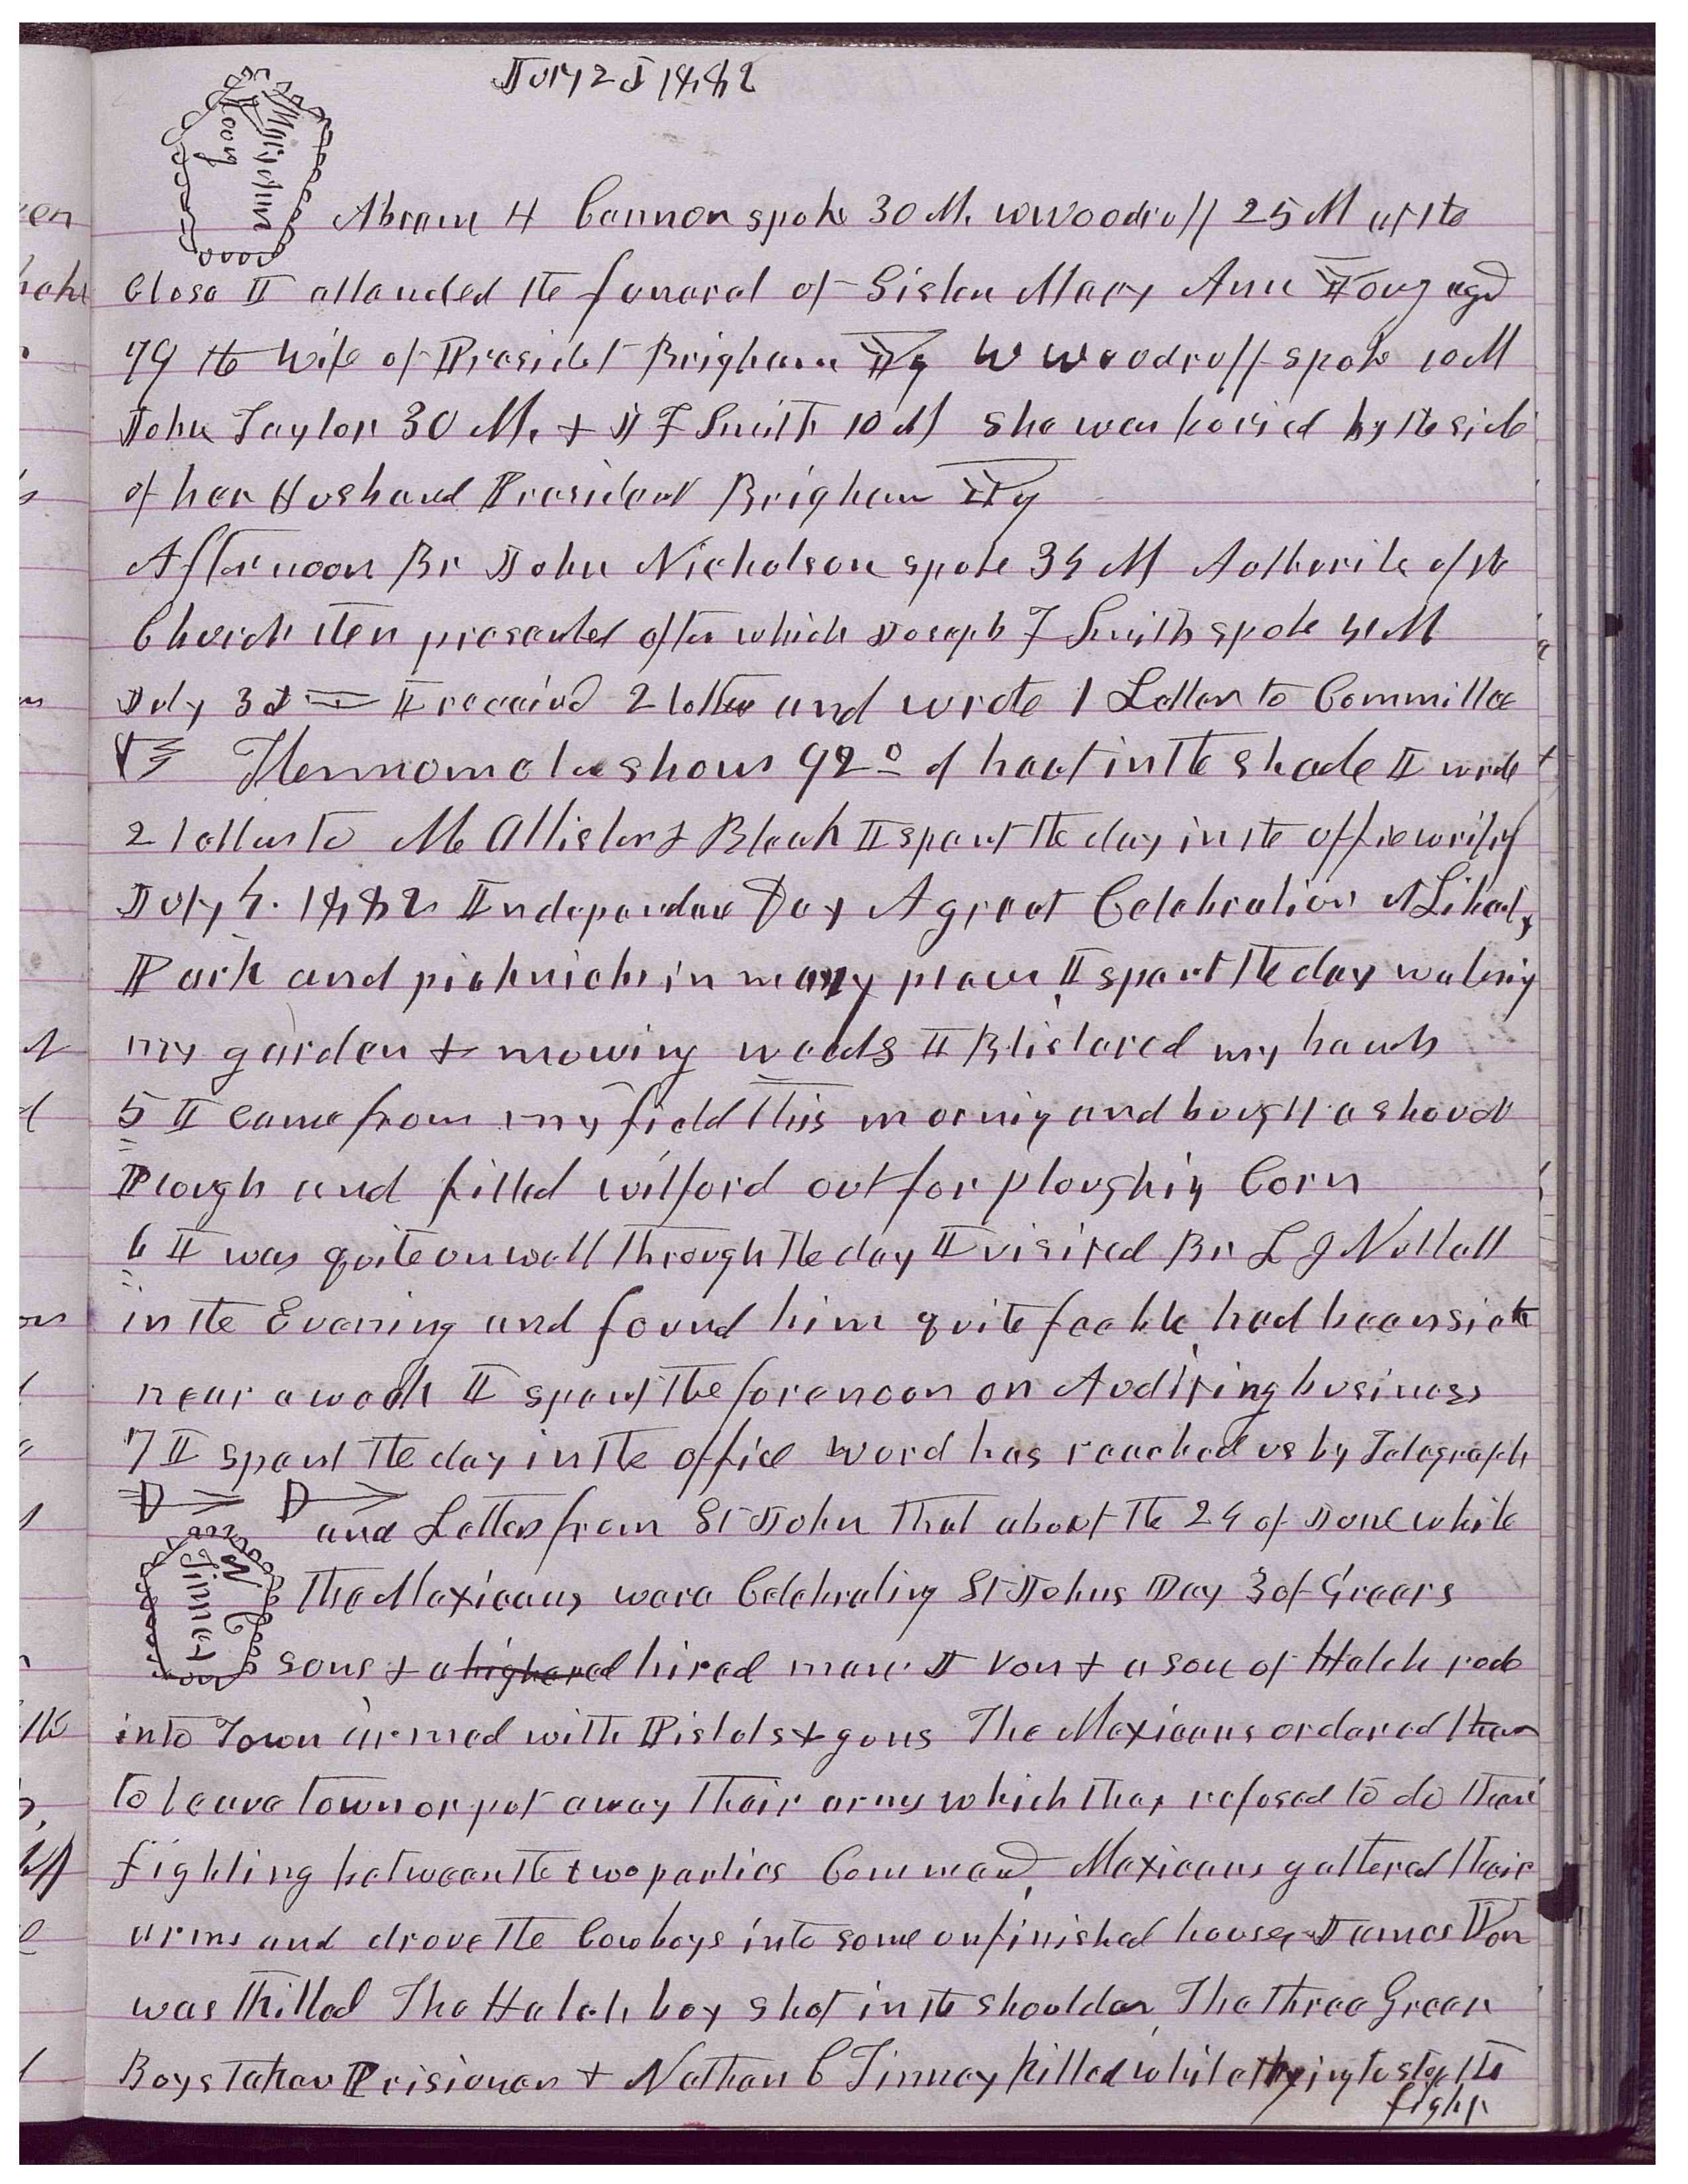 July 2d 1882
Mary Ann
Young
Abram H Cannon spoke 30 M. W Woodruff 25 M at the
Close I attended the funeral of Sister Mary Ann Young aged
79 the wife of Presidet Brigham Yg W Woodruff spoke 10 M
John Taylor 30 M, + J F Smith 10 M She was buried by the side
of her Husband President Brigham Yg
Afternoon Br John Nicholson spoke 34 M Authorite of the
Church then presented after which Joseph F Smith spoke 41 M
July 3d I receivd 2 letter and wrote 1 Letter to Committee
Thermometer shows 92° of heat in the shade I wrote
2 letters to McAllister & Bleak I spent the day in the office writing
July 4. 1882 Independance Day A great Celebration At Liberty
Park and picknicks in many places I spent the day watering
my garden + mowing weeds I Blistered my hands
5 I came from my field this morning and bought a shovel
Plough and fitted wilford out for ploughing Corn
6 I was quite unwell through the day I visited Br L J Nuttall
in the Evening and found him quite feeble had been sick
near a week I spent the forenoon on Auditing business
7 I spent the day in the office word has reached us by Telegraph
and Letters from St John that about the 24 of June while
N C
Tinney
the Mexicans were Celebrating St Johns Day 3 of Greers
sons + a highered hired man J Von + a son of Hatch rode
into Town armed with Pistols + guns The Mexicans ordered them
to leave town or put away their arms which they refused to do then
fighting between the two parties Commend, Mexicans gattered their
arms and drove the Cowboys into some unfinished houses James Von
was killed The Hatch boy shot in the shoulder, The three Greer
Boys taken Prisioner + Nathan C Tinney killed while trying to stop the
fight